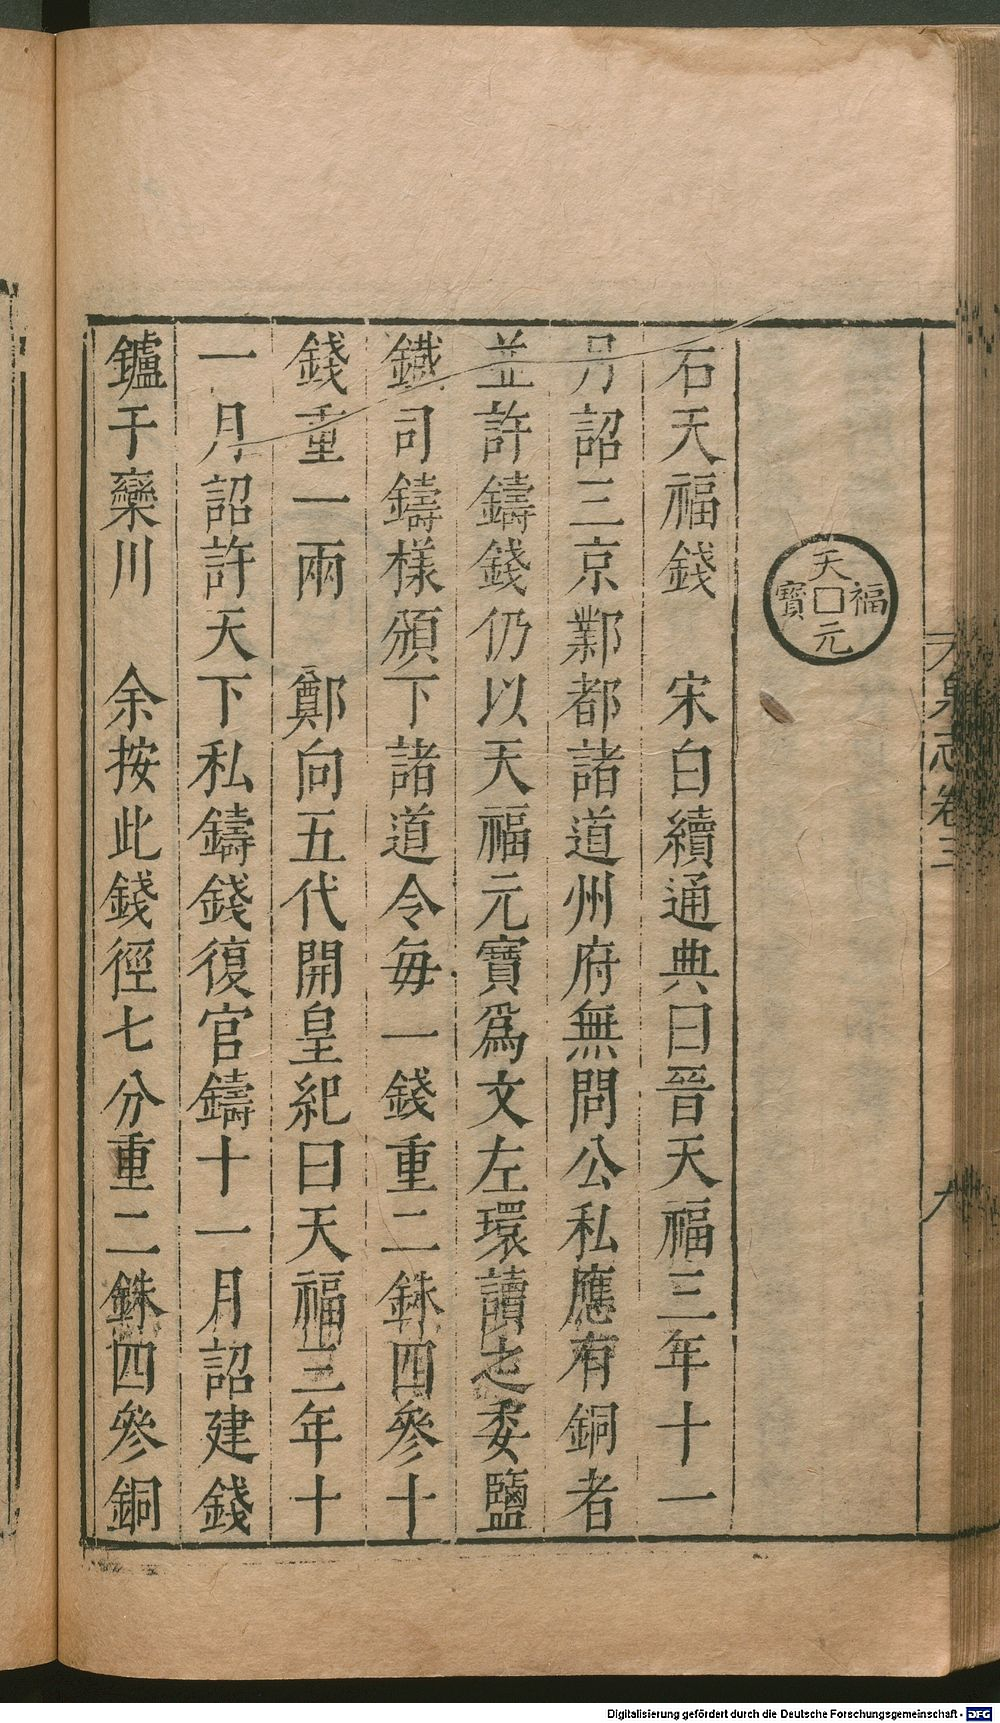 泉志卷三
天福元寶
右天福錢　宋白續通典曰晉天福三年十一
月詔三京鄴都諸道州府無問公私應有銅者
並許鑄錢仍以天福元寶爲文左環讀之委鹽
鐵司鑄樣頒下諸道令每一錢重二銖四參十
錢重一兩　鄭向五代開皇紀曰天福三年十
一月詔許天下私鑄錢復官鑄十一月詔建錢
鑪于欒川　余按此錢徑七分重二銖四參銅
Digitalisierung gefördert durch die Deutsche Forschungsgemeinschaft - DFG